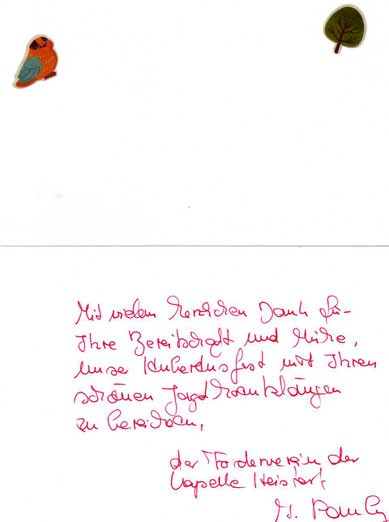 Mit vielen herzlichen Dank für
Ihre Bereitschaft und Mühe,
unser Hubertusfest mit Ihren
schönen Jagdhornklängen
zu bereichern,
der Förderverein der
Kapelle Heistert